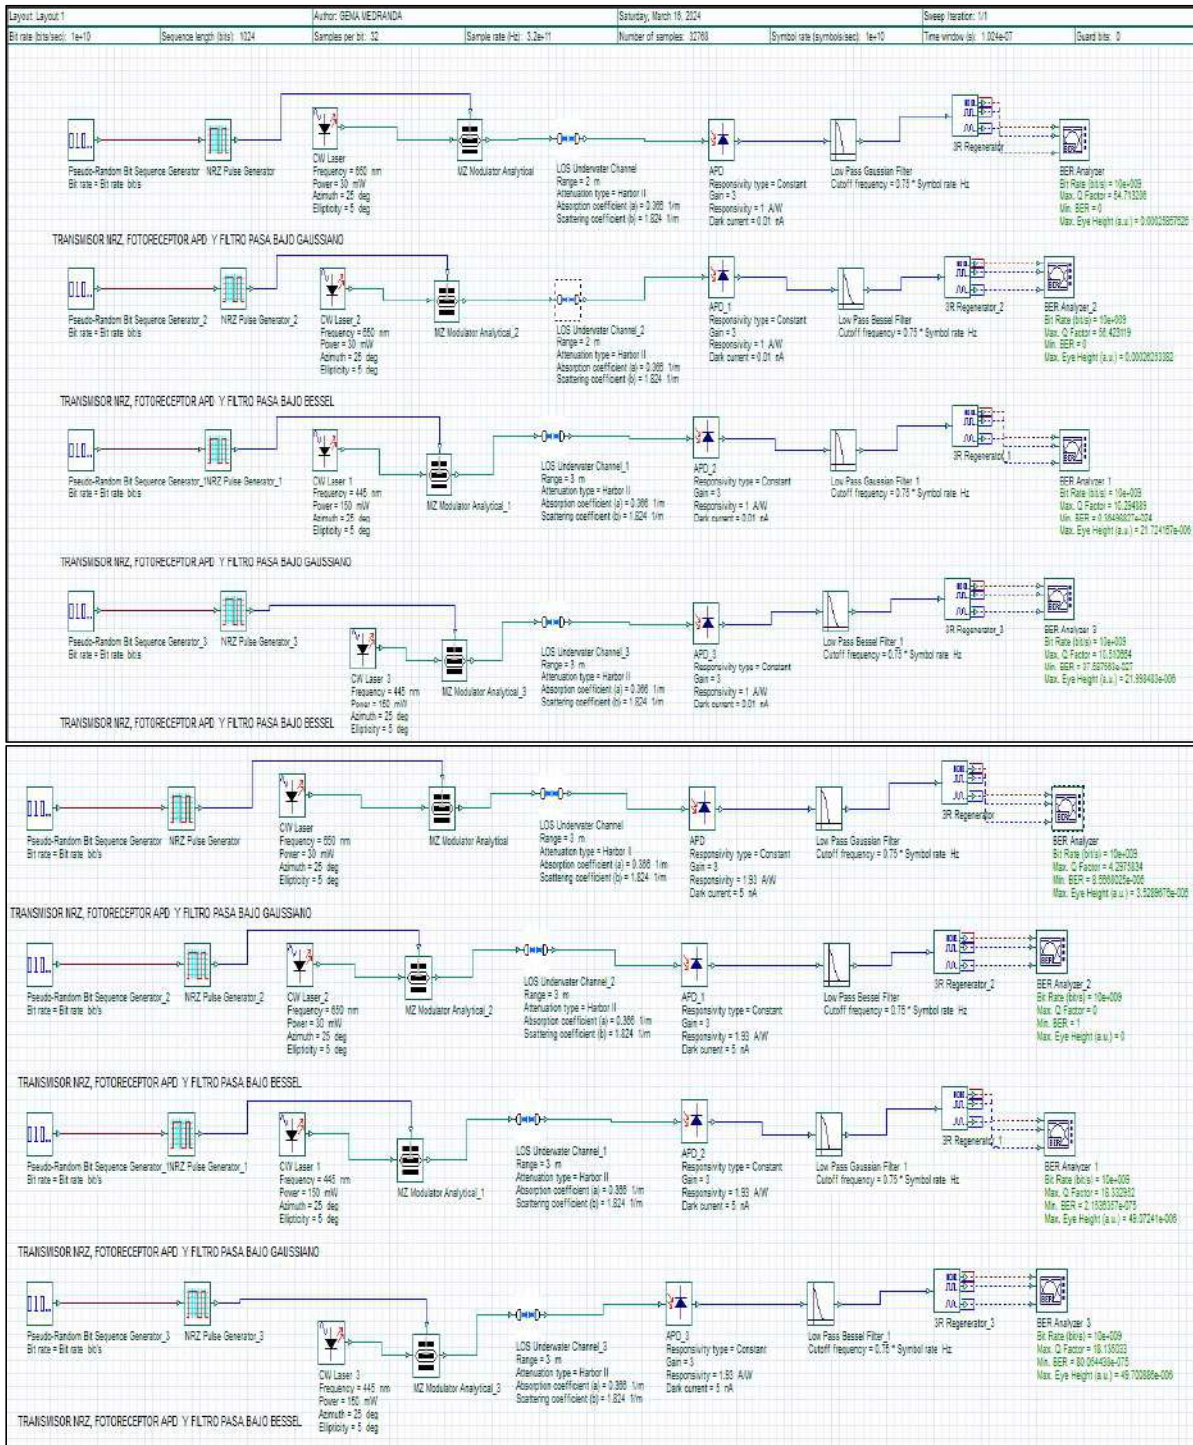 Layout: Layout 1
Author: GEMA MEDRANDA
Saturday, March 16, 2024
Sweep Iteration: 1/1
Bit rate (bits/sec): 1e+10
Sequence length (bits): 1024
Samples per bit: 32
Sample rate (Hz): 3.2e+11
Number of samples: 32768
Symbol rate (symbols/sec): 1e+10
Time window (s): 1.024e-07
Guard bits: 0
Pseudo-Random Bit Sequence Generator
Bit rate = Bit rate bit/s
NRZ Pulse Generator
CW Laser
Frequency = 650 nm
Power = 30 mW
Azimuth = 25 deg
Ellipticity = 5 deg
MZ Modulator Analytical
LOS Underwater Channel
Range = 2 m
Attenuation type = Harbor II
Absorption coefficient (a) = 0.366 1/m
Scattering coefficient (b) = 1.824 1/m
APD
Responsivity type = Constant
Gain = 3
Responsivity = 1 A/W
Dark current = 0.01 nA
Low Pass Gaussian Filter
Cutoff frequency = 0.75 * Symbol rate Hz
3R Regenerator
BER Analyzer
Bit Rate (bit/s) = 10e+009
Max. Q Factor = 54.713206
Min. BER = 0
TRANSMISOR NRZ, FOTORECEPTOR APD Y FILTRO PASA BAJO GAUSSIANO
Pseudo-Random Bit Sequence Generator_2
Bit rate = Bit rate bit/s
NRZ Pulse Generator_2
CW Laser_2
Frequency = 650 nm
Power = 30 mW
Azimuth = 25 deg
Ellipticity = 5 deg
MZ Modulator Analytical_2
LOS Underwater Channel_2
Range = 2 m
Attenuation type = Harbor II
Absorption coefficient (a) = 0.366 1/m
Scattering coefficient (b) = 1.824 1/m
APD_1
Responsivity type = Constant
Gain = 3
Responsivity = 1 A/W
Dark current = 0.01 nA
Low Pass Bessel Filter
Cutoff frequency = 0.75 * Symbol rate Hz
3R Regenerator_2
BER Analyzer_2
Bit Rate (bit/s) = 10e+009
Max. Q Factor = 56.423119
Min. BER = 0
TRANSMISOR NRZ, FOTORECEPTOR APD Y FILTRO PASA BAJO BESSEL
Pseudo-Random Bit Sequence Generator_1
Bit rate = Bit rate bit/s
NRZ Pulse Generator_1
CW Laser 1
Frequency = 445 nm
Power = 150 mW
Azimuth = 25 deg
Ellipticity = 5 deg
MZ Modulator Analytical_1
LOS Underwater Channel_1
Range = 3 m
Attenuation type = Harbor II
Absorption coefficient (a) = 0.366 1/m
Scattering coefficient (b) = 1.824 1/m
APD_2
Responsivity type = Constant
Gain = 3
Responsivity = 1 A/W
Dark current = 0.01 nA
Low Pass Gaussian Filter 1
Cutoff frequency = 0.75 * Symbol rate Hz
3R Regenerator_1
BER Analyzer 1
Bit Rate (bit/s) = 10e+009
TRANSMISOR NRZ, FOTORECEPTOR APD Y FILTRO PASA BAJO GAUSSIANO
Pseudo-Random Bit Sequence Generator_3
Bit rate = Bit rate bit/s
NRZ Pulse Generator_3
CW Laser 3
Frequency = 445 nm
Power = 150 mW
Azimuth = 25 deg
Ellipticity = 5 deg
MZ Modulator Analytical_3
LOS Underwater Channel_3
Range = 3 m
Attenuation type = Harbor II
Absorption coefficient (a) = 0.366 1/m
Scattering coefficient (b) = 1.824 1/m
APD_3
Responsivity type = Constant
Gain = 3
Responsivity = 1 A/W
Dark current = 0.01 nA
Low Pass Bessel Filter_1
Cutoff frequency = 0.75 * Symbol rate Hz
3R Regenerator_3
BER Analyzer 3
Bit Rate (bit/s) = 10e+009
TRANSMISOR NRZ, FOTORECEPTOR APD Y FILTRO PASA BAJO BESSEL
Pseudo-Random Bit Sequence Generator
Bit rate = Bit rate bit/s
NRZ Pulse Generator
CW Laser
Frequency = 650 nm
Power = 30 mW
Azimuth = 25 deg
Ellipticity = 5 deg
MZ Modulator Analytical
LOS Underwater Channel
Range = 3 m
Attenuation type = Harbor II
Absorption coefficient (a) = 0.366 1/m
Scattering coefficient (b) = 1.824 1/m
APD
Responsivity type = Constant
Gain = 3
Responsivity = 1.93 A/W
Dark current = 5 nA
Low Pass Gaussian Filter
Cutoff frequency = 0.75 * Symbol rate Hz
3R Regenerator
BER Analyzer
Bit Rate (bit/s) = 10e+009
Max. Q Factor = 4.2975834
TRANSMISOR NRZ, FOTORECEPTOR APD Y FILTRO PASA BAJO GAUSSIANO
Pseudo-Random Bit Sequence Generator_2
Bit rate = Bit rate bit/s
NRZ Pulse Generator_2
CW Laser_2
Frequency = 650 nm
Power = 30 mW
Azimuth = 25 deg
Ellipticity = 5 deg
MZ Modulator Analytical_2
LOS Underwater Channel_2
Range = 3 m
Attenuation type = Harbor II
Absorption coefficient (a) = 0.366 1/m
Scattering coefficient (b) = 1.824 1/m
APD_1
Responsivity type = Constant
Gain = 3
Responsivity = 1.93 A/W
Dark current = 5 nA
Low Pass Bessel Filter
Cutoff frequency = 0.75 * Symbol rate Hz
3R Regenerator_2
BER Analyzer_2
Bit Rate (bit/s) = 10e+009
Max. Q Factor = 0
Min. BER = 1
Max. Eye Height (a.u.) = 0
TRANSMISOR NRZ, FOTORECEPTOR APD Y FILTRO PASA BAJO BESSEL
Pseudo-Random Bit Sequence Generator_1
Bit rate = Bit rate bit/s
NRZ Pulse Generator_1
CW Laser 1
Frequency = 445 nm
Power = 150 mW
Azimuth = 25 deg
Ellipticity = 5 deg
MZ Modulator Analytical_1
LOS Underwater Channel_1
Range = 3 m
Attenuation type = Harbor II
Absorption coefficient (a) = 0.366 1/m
Scattering coefficient (b) = 1.824 1/m
APD_2
Responsivity type = Constant
Gain = 3
Responsivity = 1.93 A/W
Dark current = 5 nA
Low Pass Gaussian Filter 1
Cutoff frequency = 0.75 * Symbol rate Hz
3R Regenerator_1
BER Analyzer 1
Bit Rate (bit/s) = 10e+009
Max. Eye Height (a.u.) = 49.07241e-006
TRANSMISOR NRZ, FOTORECEPTOR APD Y FILTRO PASA BAJO GAUSSIANO
Pseudo-Random Bit Sequence Generator_3
Bit rate = Bit rate bit/s
NRZ Pulse Generator_3
CW Laser 3
Frequency = 445 nm
Power = 150 mW
Azimuth = 25 deg
Ellipticity = 5 deg
MZ Modulator Analytical_3
LOS Underwater Channel_3
Range = 3 m
Attenuation type = Harbor II
Absorption coefficient (a) = 0.366 1/m
Scattering coefficient (b) = 1.824 1/m
APD_3
Responsivity type = Constant
Gain = 3
Responsivity = 1.93 A/W
Dark current = 5 nA
Low Pass Bessel Filter_1
Cutoff frequency = 0.75 * Symbol rate Hz
3R Regenerator_3
BER Analyzer 3
Bit Rate (bit/s) = 10e+009
Max. Q Factor = 18.135033
TRANSMISOR NRZ, FOTORECEPTOR APD Y FILTRO PASA BAJO BESSEL